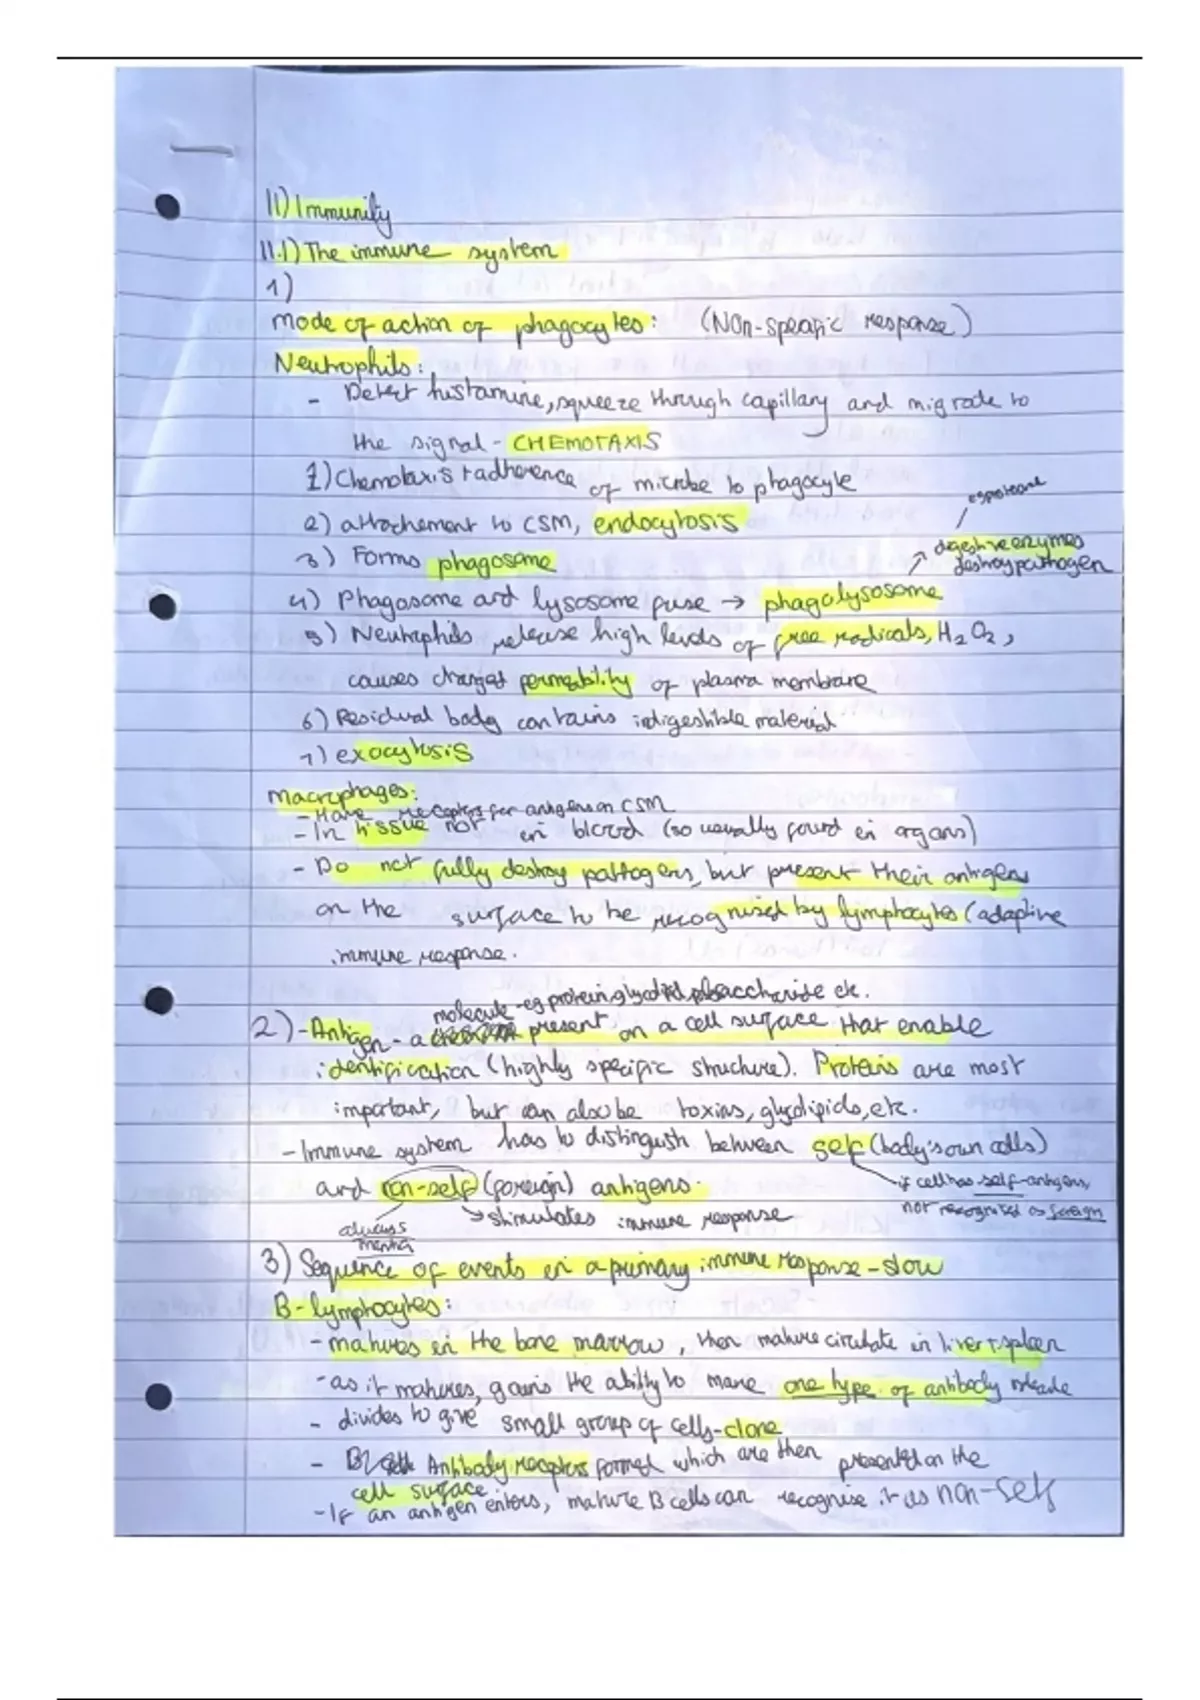 11) Immunity
11.1) The immune system
1)
Mode of action of phagocytes: (Non-specific response)
Neutrophils:
- Detect histamine, squeeze through capillary and migrate to
the signal - CHEMOTAXIS
1) Chemotaxis + adherence of microbe to phagocyte
2) attachement to CSM, endocytosis
3) Forms phagosome
digestive enzymes
destroy pathogen
4) Phagosome and lysosome fuse → phagolysosome
5) Neutrophils release high levels of free radicals, H2O2,
causes changes permeability of plasma membrane
6) Residual body contains indigestible material
7) exocytosis
Macrophages:
- Have receptors for antigens on CSM
- In tissue not in blood (so usually found in organs)
- Do not fully destroy pathogens, but present their antigens
on the surface to be recognised by lymphocytes (adaptive
immune response.
molecule - eg protein, glycolipid, etc.
2) - Antigen - a present on a cell surface that enable
identification (highly specific structure). Proteins are most
important, but can also be toxins, glycolipids, etc.
- Immune system has to distinguish between self (body's own cells)
and non-self (foreign) antigens.
if cell has self-antigens,
not recognised as foreign
→ stimulates immune response
always
3) Sequence of events in a primary immune response - slow
B-lymphocytes:
- matures in the bone marrow, then mature circulate in liver + spleen
- as it matures, gains the ability to make one type of antibody
- divides to give small group of cells - clone
- Antibody receptors formed which are then presented on the
cell surface.
- If an antigen enters, mature B cells can recognise it as non-self